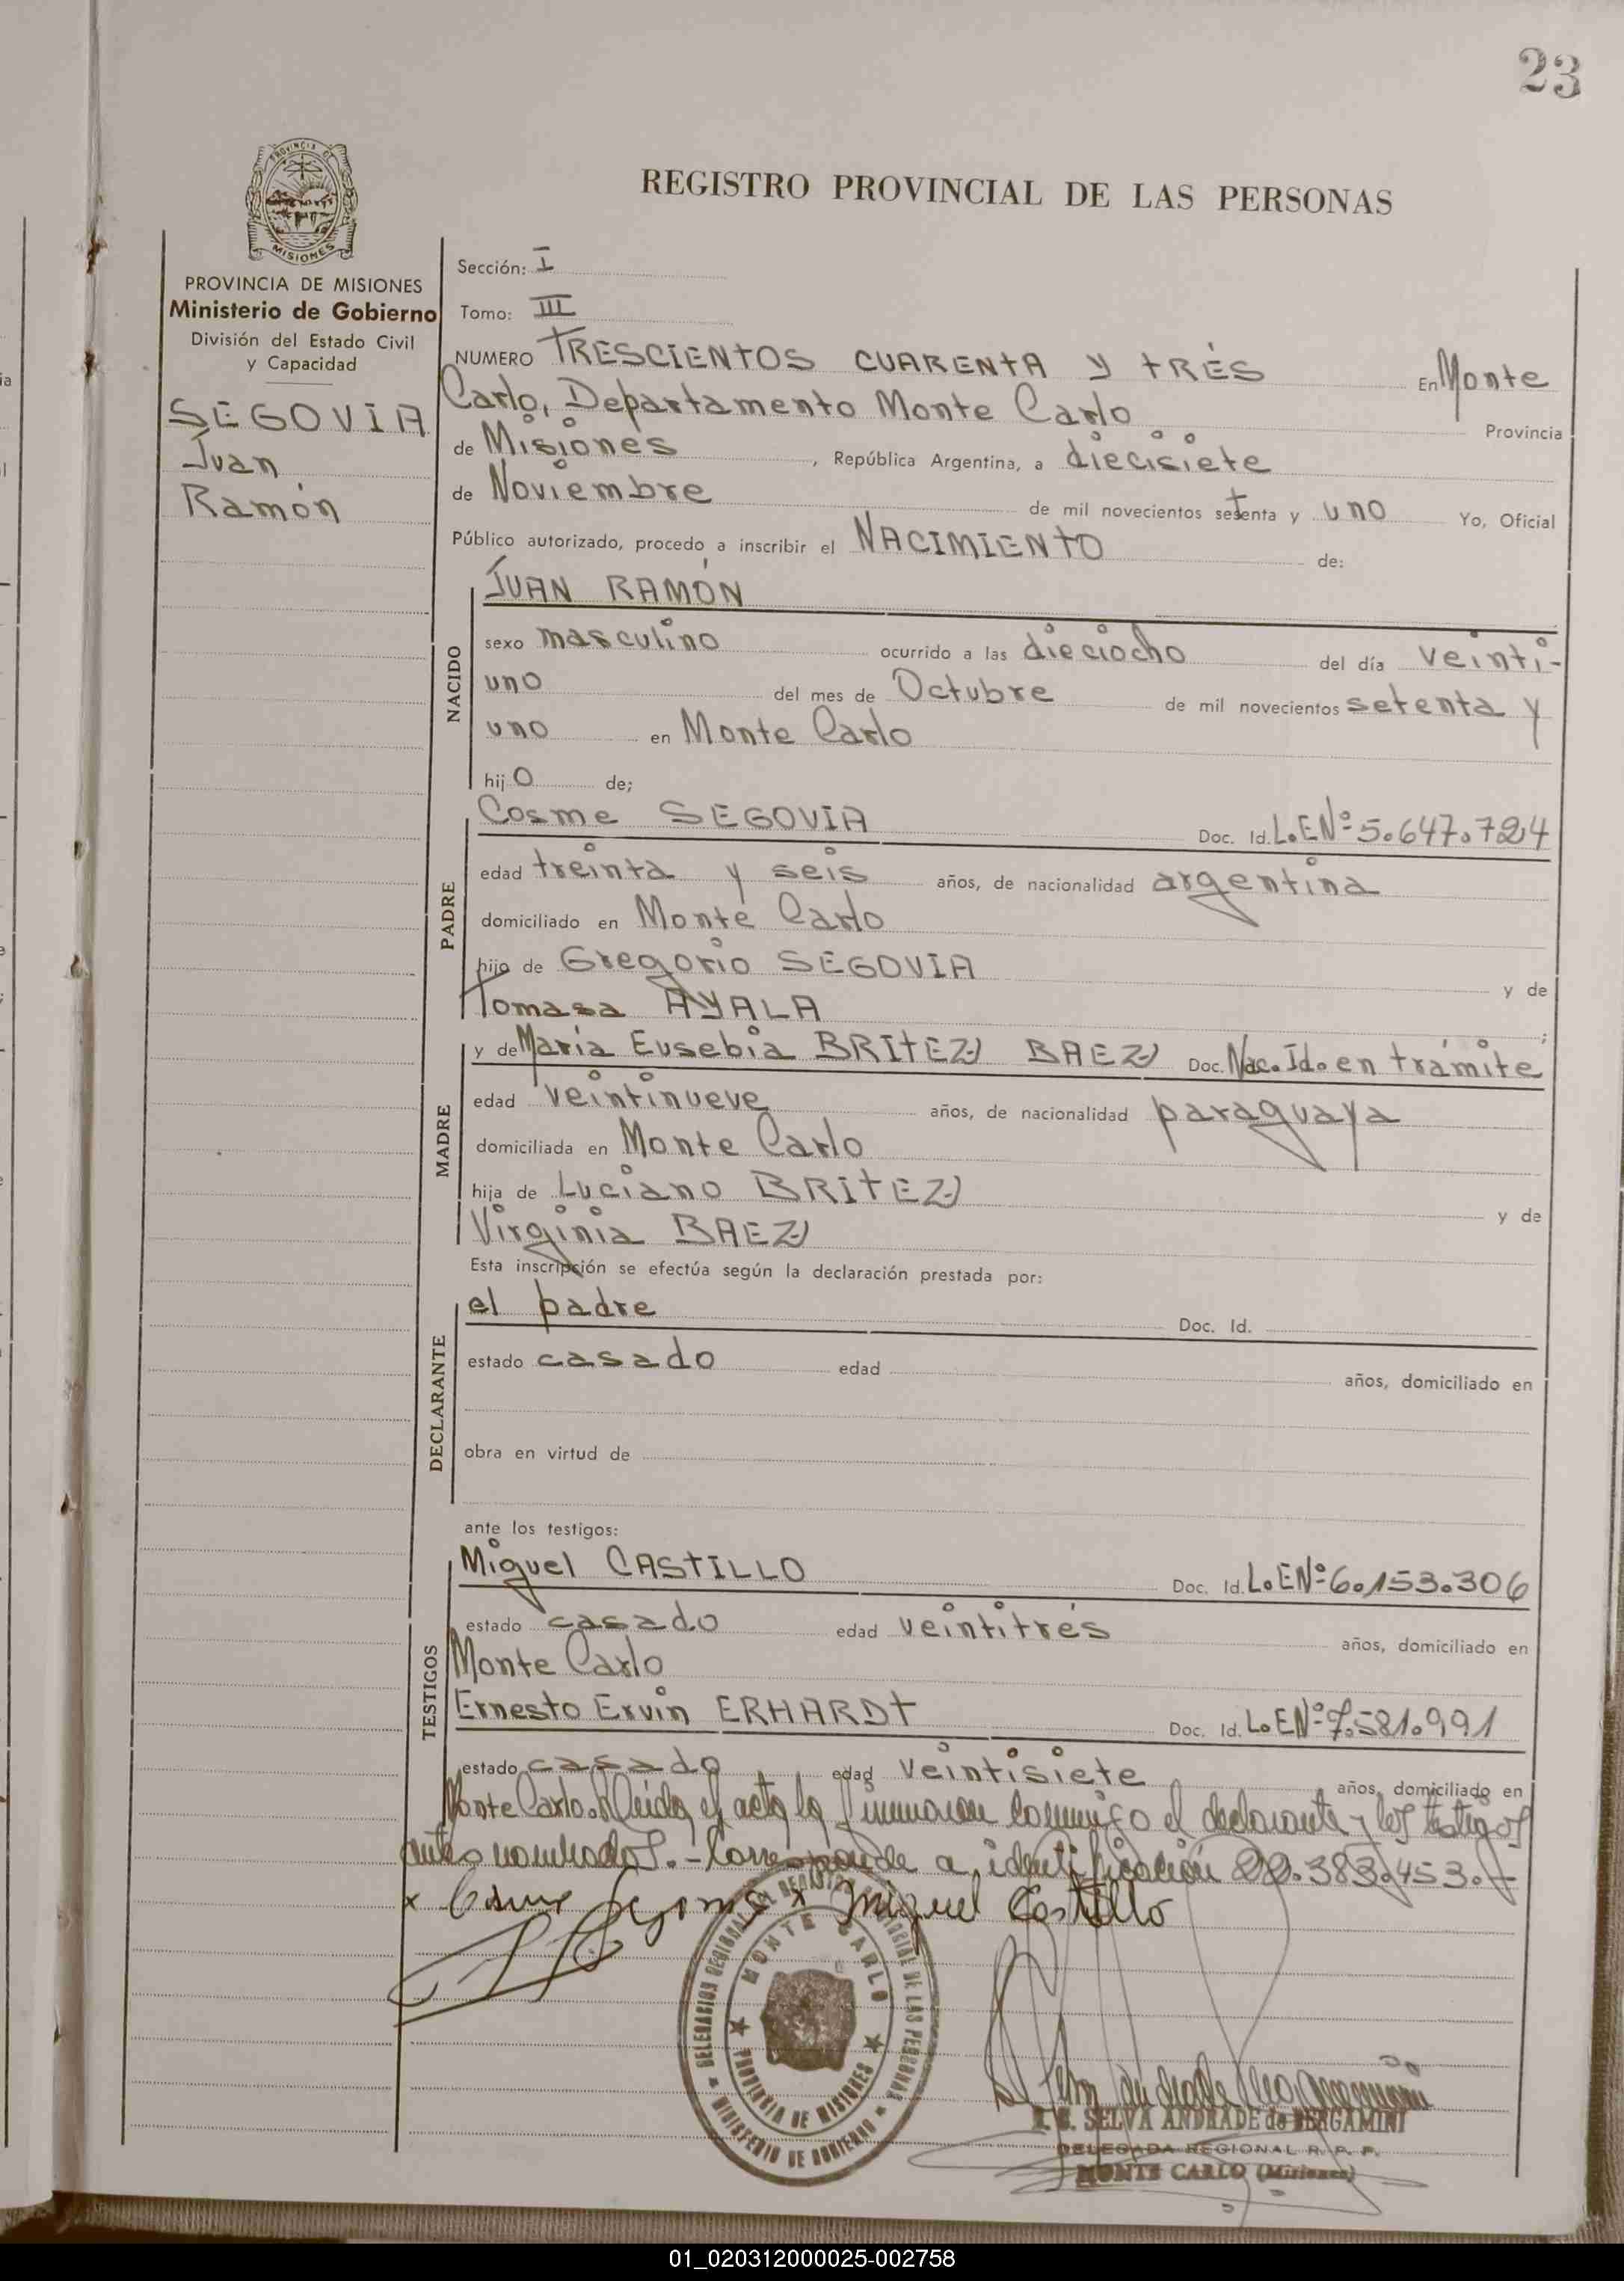 23
PROVINCIA DE
MISIONES
REGISTRO PROVINCIAL DE LAS PERSONAS
PROVINCIA DE MISIONES
Ministerio de Gobierno
División del Estado Civil
y Capacidad
SEGOVIA
Juan
Ramón
Sección: I
Tomo: III
NUMERO TRESCIENTOS CUARENTA Y TRÉS En Monte
Carlo, Departamento Monte Carlo Provincia
de Misiones, República Argentina, a diecisiete
de Noviembre de mil novecientos setenta y uno Yo, Oficial
Público autorizado, procedo a inscribir el NACIMIENTO de:
NACIDO
JUAN RAMÓN
sexo masculino ocurrido a las dieciocho del día veinti-
uno del mes de Octubre de mil novecientos setenta y
uno en Monte Carlo
hijo de;
PADRE
Cosme SEGOVIA Doc. Id. L.E Nº 5.647.724
edad treinta y seis años, de nacionalidad argentina
domiciliado en Monte Carlo
hijo de Gregorio SEGOVIA y de
Tomasa AYALA;
MADRE
y de María Eusebia BRITEZ BAEZ Doc. Nac. Id. en trámite
edad veintinueve años, de nacionalidad paraguaya
domiciliada en Monte Carlo
hija de Luciano BRITEZ y de
Virginia BAEZ
Esta inscripción se efectúa según la declaración prestada por:
DECLARANTE
el padre Doc. Id.
estado casado edad años, domiciliado en
obra en virtud de
ante los testigos:
TESTIGOS
Miguel CASTILLO Doc. Id. L.E Nº 6.153.306
estado casado edad veintitrés años, domiciliado en
Monte Carlo
Ernesto Ervin ERHARDT Doc. Id. L.E Nº 7.581.991
estado casado edad veintisiete años, domiciliado en
Monte Carlo. Leída el acta la firmaron conmigo el declarante y los testigos
antes nombrados.- Corresponde a identificación 383.453.-
x Cosme Segovia x Miguel Castillo
DELEGACION REGIONAL DEL REGISTRO PROVINCIAL DE LAS PERSONAS
MONTE CARLO
PROVINCIA DE MISIONES
MINISTERIO DE GOBIERNO
SELVA ANDRADE de BERGAMINI
DELEGADA REGIONAL R. P. P.
MONTE CARLO (Misiones)
01_020312000025-002758